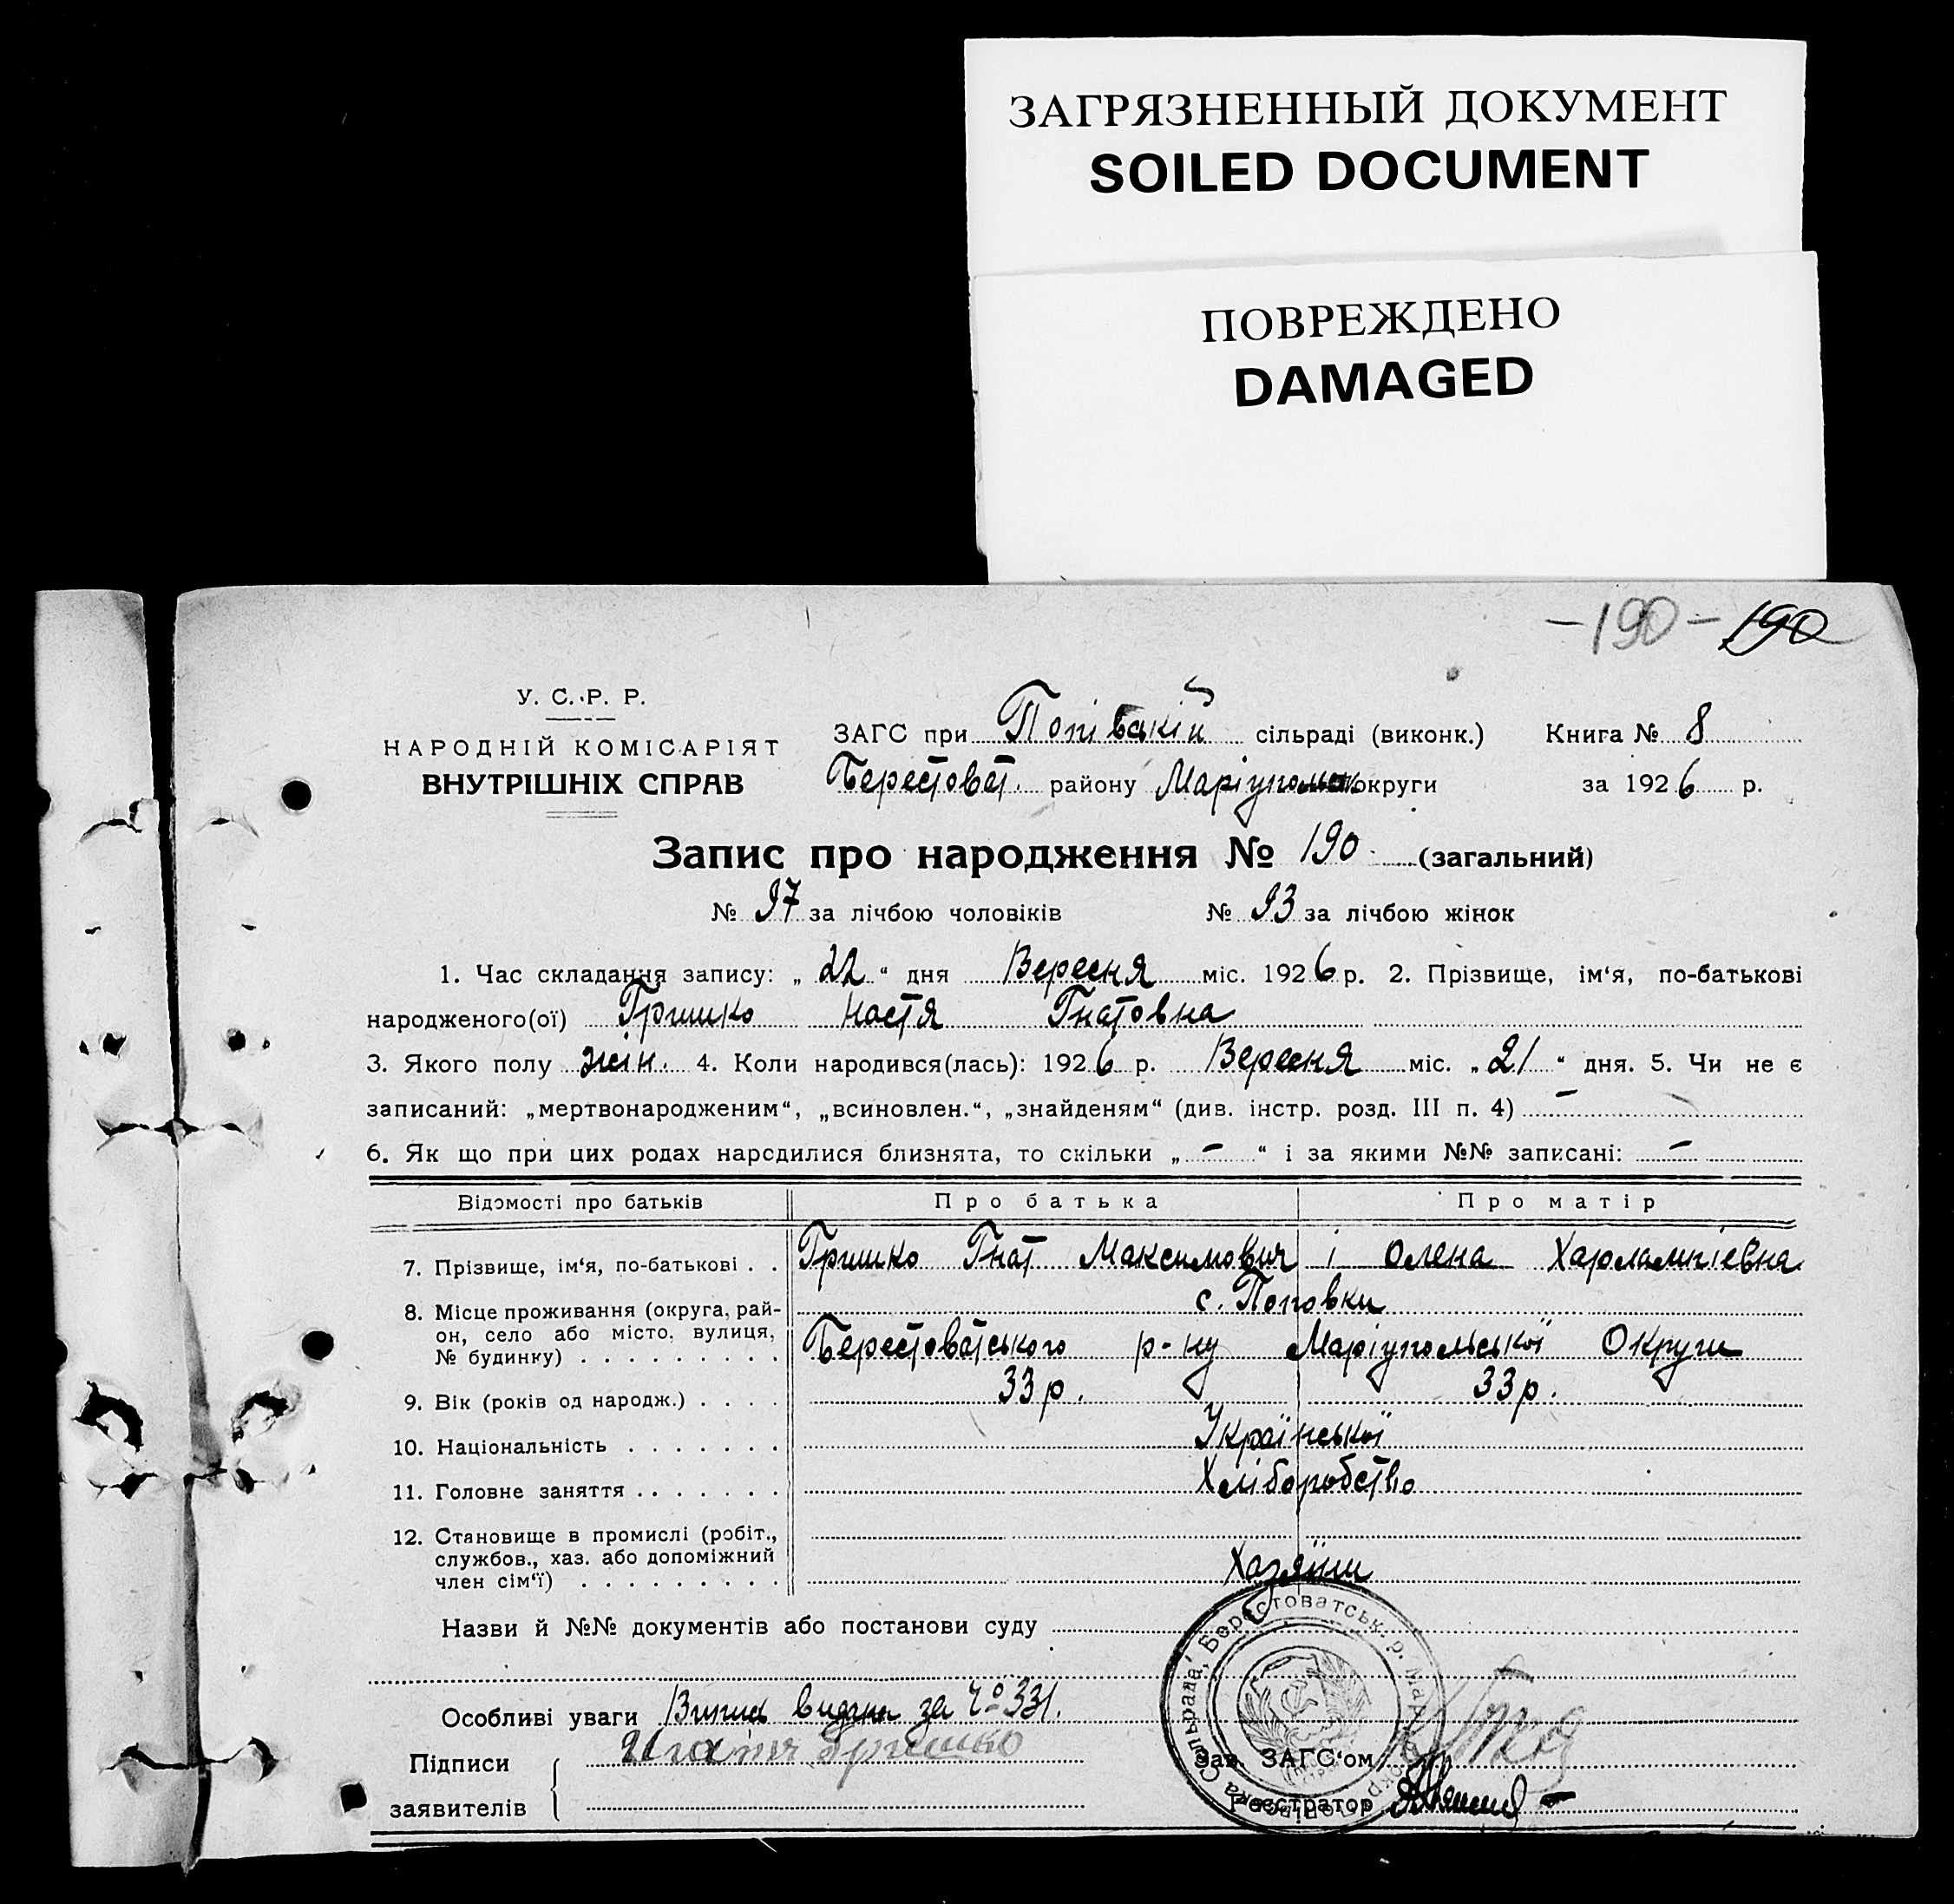 ЗАГРЯЗНЕННЫЙ ДОКУМЕНТ
SOILED DOCUMENT
ПОВРЕЖДЕНО
DAMAGED
—190— 190
У. С. Р. Р.
НАРОДНІЙ КОМІСАРІЯТ
ВНУТРІШНІХ СПРАВ
ЗАГС при Попівській сільраді (виконк.) Книга № 8
Берестоват. району Маріупольськ округи за 1926 р.
Запис про народження № 190 (загальний)
№ 97 за лічбою чоловіків № 93 за лічбою жінок
1. Час складання запису: „ 22 “ дня Вересня міс. 1926 р. 2. Прізвище, ім‘я, по-батькові
народженого(ої) Гришко Настя Гнатовна
3. Якого полу жін. 4. Коли народився(лась): 1926 р. Вересня міс. „ 21 “ дня. 5. Чи не є
записаний: „мертвонародженим“, „всиновлен.“, „знайденям“ (див. інстр. розд. III п. 4) —
6. Як що при цих родах народилися близнята, то скільки „ — “ і за якими №№ записані: —
Відомості про батьків Про батька Про матір
7. Прізвище, ім‘я, по-батькові . . Гришко Гнат Максимович і Олена Харлампіевна
8. Місце проживання (округа, рай-
он, село або місто, вулиця,
№ будинку) . . . . . . . . .
с. Поповки
Берестоватського р-ну Маріупольської Округи
9. Вік (років од народж.) . . . . 33 р. 33 р.
10. Національність . . . . . . . Української
11. Головне заняття . . . . . . . Хліборобство
12. Становище в промислі (робіт.,
службов., хаз. або допоміжний
член сім‘ї) . . . . . . . . .
Хазяїни
Назви й №№ документів або постанови суду
Особливі уваги Випись видана за № 331.
Підписи
заявителів
Игнат Гришко
Зав. ЗАГС‘ом
Реєстратор
Сільрада, Берестоватськ. р. Мар